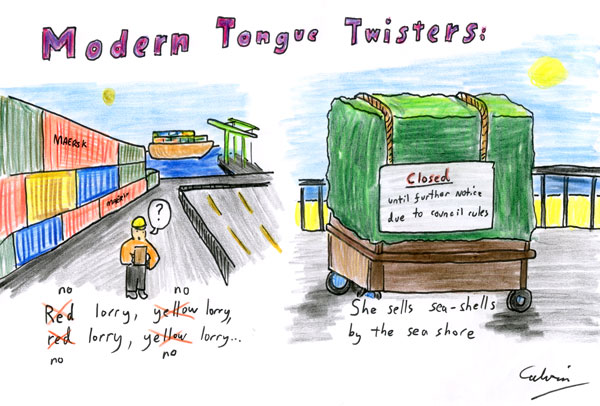 Modern Tongue Twisters:
MAERSK
MAERSK
?
Closed
until further notice
due to council rules
no no
Red lorry, yellow lorry,
red lorry, yellow lorry...
no no
She sells sea-shells
by the sea shore
Calvin